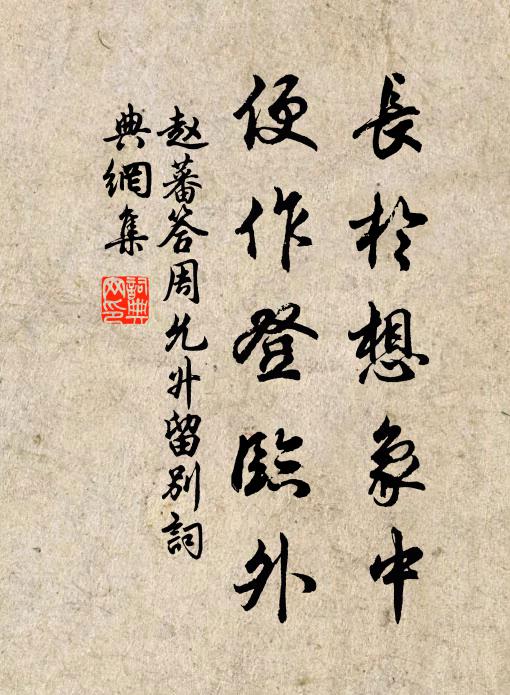 長於想象中
便作登臨外
赵蕃答周允升留別詞
典網集
詞典
网印